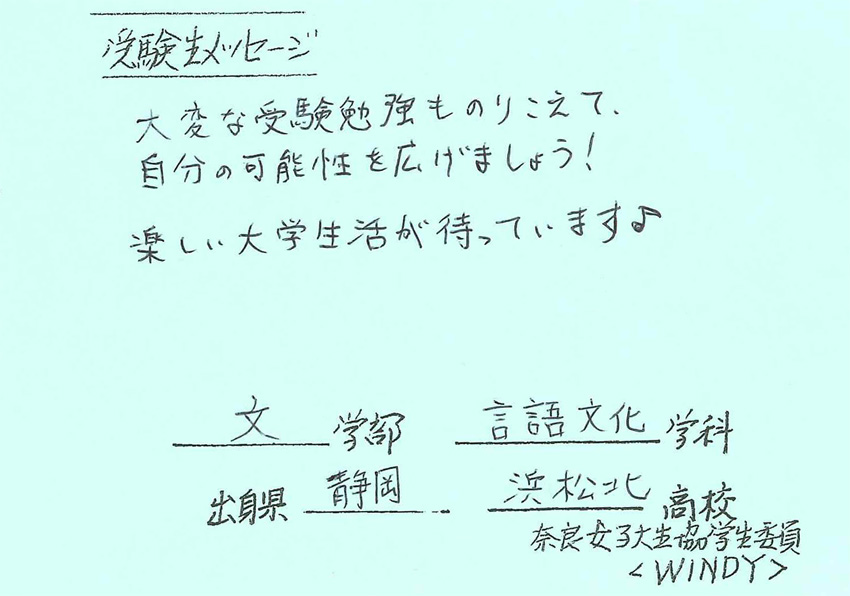 受験生メッセージ
大変な受験勉強ものりこえて、
自分の可能性を広げましょう!
楽しい大学生活が待っています♪
文 学部 言語文化 学科
出身県 静岡 浜松北 高校
奈良女子大生協学生委員
<WINDY>